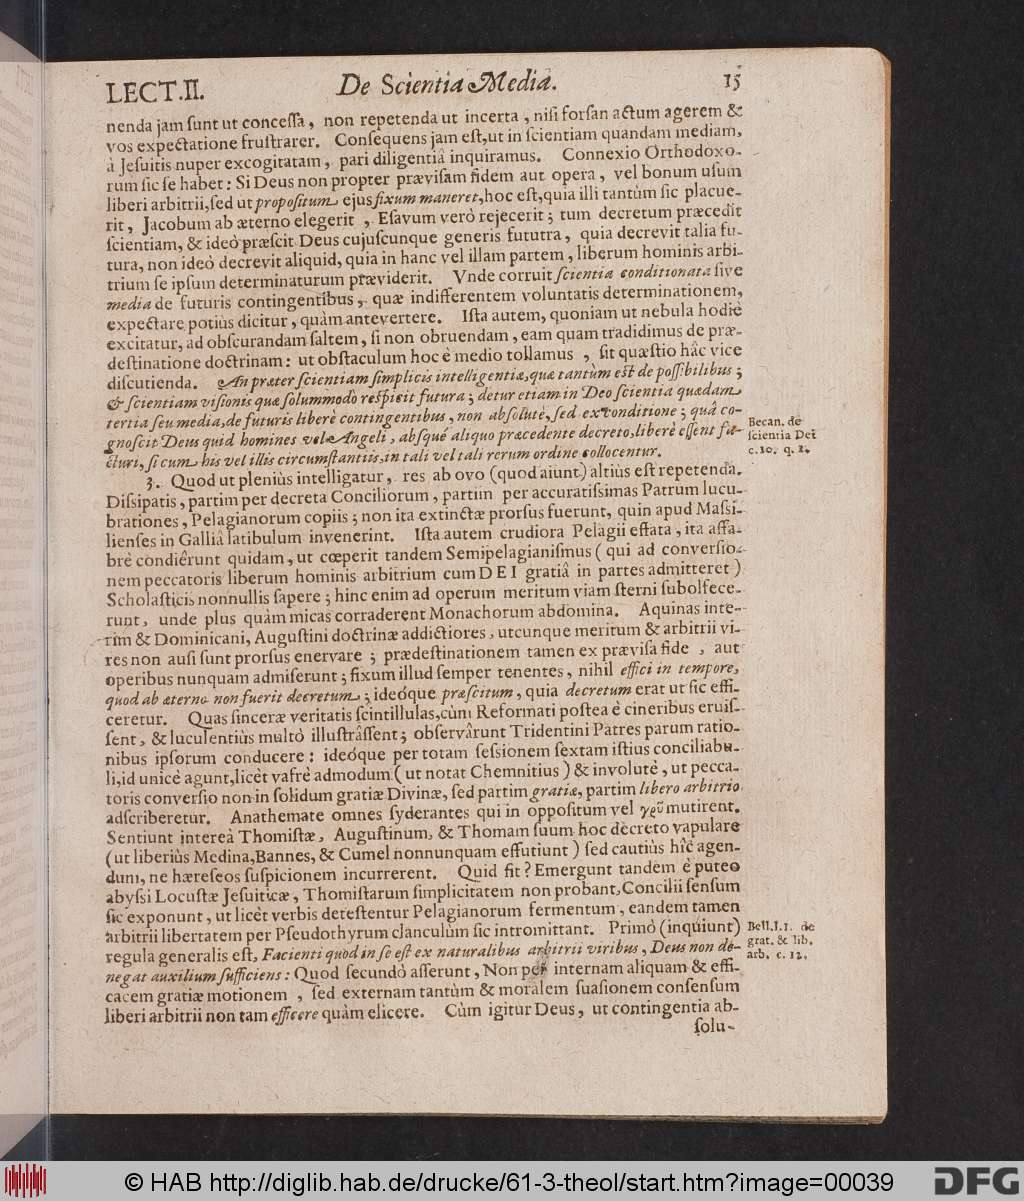 LECT.II. De Scientia Media. 15
nenda jam sunt ut concessa, non repetenda ut incerta, nisi forsan actum agerem &
vos expectatione frustrarer. Consequens jam est, ut in scientiam quandam mediam,
à Jesuitis nuper excogitatam, pari diligentiâ inquiramus. Connexio Orthodoxo-
rum sic se habet: Si Deus non propter prævisam fidem aut opera, vel bonum usum
liberi arbitrii, sed ut propositum ejus fixum maneret, hoc est, quia illi tantùm sic placue-
rit, Jacobum ab æterno elegerit, Esavum verò rejecerit; tum decretum præcedit
scientiam, & ideò præscit Deus cujuscunque generis fututra, quia decrevit talia fu-
tura, non ideò decrevit aliquid, quia in hanc vel illam partem, liberum hominis arbi-
trium se ipsum determinaturum præviderit. Vnde corruit scientia conditionata sive
media de futuris contingentibus, quæ indifferentem voluntatis determinationem,
expectare potiùs dicitur, quàm antevertere. Ista autem, quoniam ut nebula hodiè
excitatur, ad obscurandam saltem, si non obruendam, eam quam tradidimus de præ-
destinatione doctrinam: ut obstaculum hoc è medio tollamus, sit quæstio hâc vice
discutienda. An præter scientiam simplicis intelligentiæ, quæ tantùm est de possibilibus;
& scientiam visionis quæ solummodò respicit futura; detur etiam in Deo scientia quædam
tertia seu media, de futuris liberè contingentibus, non absolutè, sed ex conditione; quâ co-
gnoscit Deus quid homines vel Angeli, absque aliquo præcedente decreto, liberè essent fa-
cturi, si cum his vel illis circumstantiis, in tali vel tali rerum ordine collocentur.
Becan. de
scientia Dei
c. 10. q. 2.
3. Quod ut pleniùs intelligatur, res ab ovo (quod aiunt) altiùs est repetenda.
Dissipatis, partim per decreta Conciliorum, partim per accuratissimas Patrum lucu-
brationes, Pelagianorum copiis; non ita extinctæ prorsus fuerunt, quin apud Massi-
lienses in Galliâ latibulum invenerint. Ista autem crudiora Pelagii effata, ita affa-
brè condiêrunt quidam, ut cœperit tandem Semipelagianismus (qui ad conversio-
nem peccatoris liberum hominis arbitrium cum DEI gratiâ in partes admitteret)
Scholasticis nonnullis sapere; hinc enim ad operum meritum viam sterni subolfece-
runt, unde plus quàm micas corraderent Monachorum abdomina. Aquinas inte-
rim & Dominicani, Augustini doctrinæ addictiores, utcunque meritum & arbitrii vi-
res non ausi sunt prorsus enervare; prædestinationem tamen ex prævisa fide, aut
operibus nunquam admiserunt; fixum illud semper tenentes, nihil effici in tempore,
quod ab æterno non fuerit decretum; ideóque præscitum, quia decretum erat ut sic effi-
ceretur. Quas sinceræ veritatis scintillulas, cùm Reformati postea è cineribus eruis-
sent, & luculentiùs multò illustrâssent; observârunt Tridentini Patres parum ratio-
nibus ipsorum conducere: ideóque per totam sessionem sextam istius conciliabu-
li, id unicè agunt, licèt vafrè admodum (ut notat Chemnitius) & involutè, ut pecca-
toris conversio non in solidum gratiæ Divinæ, sed partim gratiæ, partim libero arbitrio
adscriberetur. Anathemate omnes syderantes qui in oppositum vel γρῦ mutirent.
Sentiunt intereà Thomistæ, Augustinum, & Thomam suum hoc decreto vapulare
(ut liberiùs Medina, Bannes, & Cumel nonnunquam effutiunt) sed cautiùs hîc agen-
dum, ne hæreseos suspicionem incurrerent. Quid fit? Emergunt tandem è puteo
abyssi Locustæ Jesuiticæ, Thomistarum simplicitatem non probant, Concilii sensum
sic exponunt, ut licèt verbis detestentur Pelagianorum fermentum, eandem tamen
arbitrii libertatem per Pseudothyrum clanculùm sic intromittant. Primò (inquiunt)
regula generalis est, Facienti quod in se est ex naturalibus arbitrii viribus, Deus non de-
negat auxilium sufficiens: Quod secundò asserunt, Non per internam aliquam & effi-
cacem gratiæ motionem, sed externam tantùm & moralem suasionem consensum
liberi arbitrii non tam efficere quàm elicere. Cùm igitur Deus, ut contingentia ab-
solu-
Bell. l. 1. de
grat. & lib.
arb. c. 12.
© HAB http://diglib.hab.de/drucke/61-3-theol/start.htm?image=00039
DFG